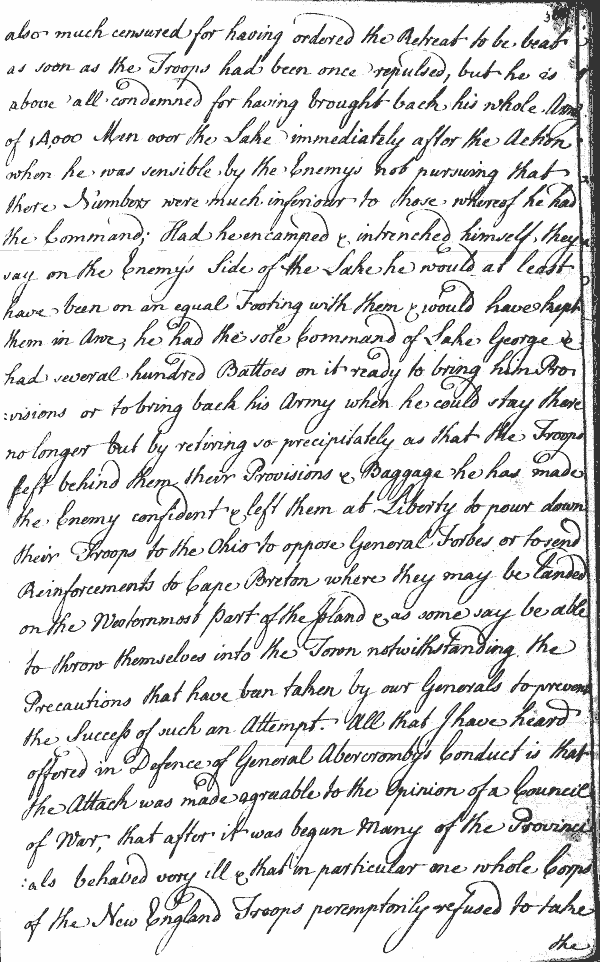 also much censured for having ordered the Retreat to be beat
as soon as the Troops had been once repulsed, but he is
above all condemned for having brought back his whole Army
of 14,000 Men over the Lake immediately after the Action
when he was sensible by the Enemys not pursuing that
there Numbers were much inferiour to those whereof he had
the Command; Had he encamped & intrenched himself, they
say on the Enemy's Side of the Lake he would at least
have been on an equal Footing with them & would have kept
them in Awe, he had the sole Command of Lake George &
had several hundred Battoes on it ready to bring him Pro
:visions or to bring back his Army when he could stay there
no longer but by retiring so precipitately as that the Troops
left behind them their Provisions & Baggage he has made
the Enemy confident & left them at Liberty to pour down
their Troops to the Ohio to oppose General Forbes or to send
Reinforcements to Cape Breton where they may be landed
on the Westernmost part of the Island & as some say be able
to throw themselves into the Town notwithstanding the
Precautions that have been taken by our Generals to prevent
the Success of such an Attempt. All that I have heard
offered in Defence of General Abercromby's Conduct is that
the Attack was made agreeable to the Opinion of a Council
of War, that after it was begun Many of the Provinci
:als behaved very ill & that in particular one whole Corps
of the New England Troops peremptorily refused to take
the